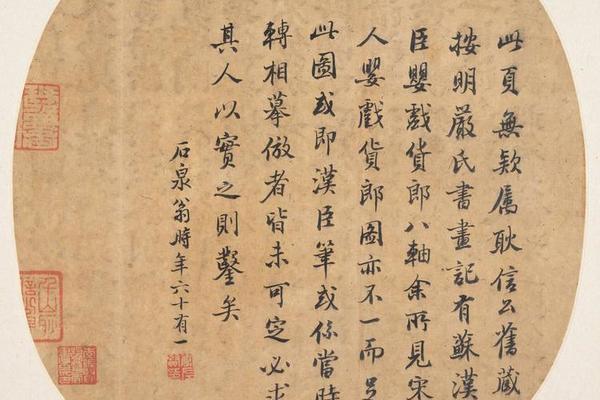 此頁無欵屬耿信公舊藏
按明嚴氏書畫記有蘇漢
臣嬰戲貨郎八軸余所見宋
人嬰戲貨郎圖亦不一而足
此圖或即漢臣筆或係當時
轉相摹倣者皆未可定必求
其人以實之則鑿矣
石泉翁時年六十有一